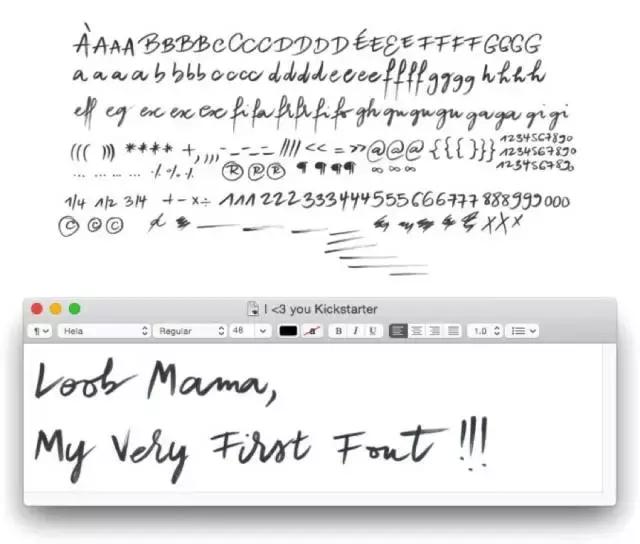 ÀAAABBBBCCCCDDDDÉEEEFFFFGGGG
aaaabbbbccccddddeeeeffffgggghhhh
((( ))) **** +,,,,-_-_= //// << = >> @@@ {{{ }}} 1234567890
1234567890
... ... ... ... ·/. %. ®®® ¶¶¶¶ ∞∞∞ 1234567890
1/4 1/2 3/4 +-×÷ 111222333444555666777888999000
©©© XXX
I <3 you Kickstarter
¶ Hela Regular 48 a B I U 1.0
Loob Mama,
My Very First Font !!!